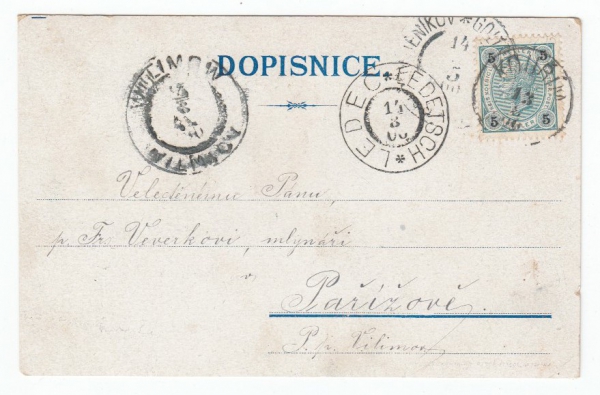 DOPISNICE
WILIMOW
WILIMOV
LEDEČ * LEDETSCH *
14
3
00
14
5
5
5
5
KOUŘIM
Veleděnému Pánu,
p. Fr. Veverkovi, mlynáři
v
Pařížově.
P. p. Vilimov